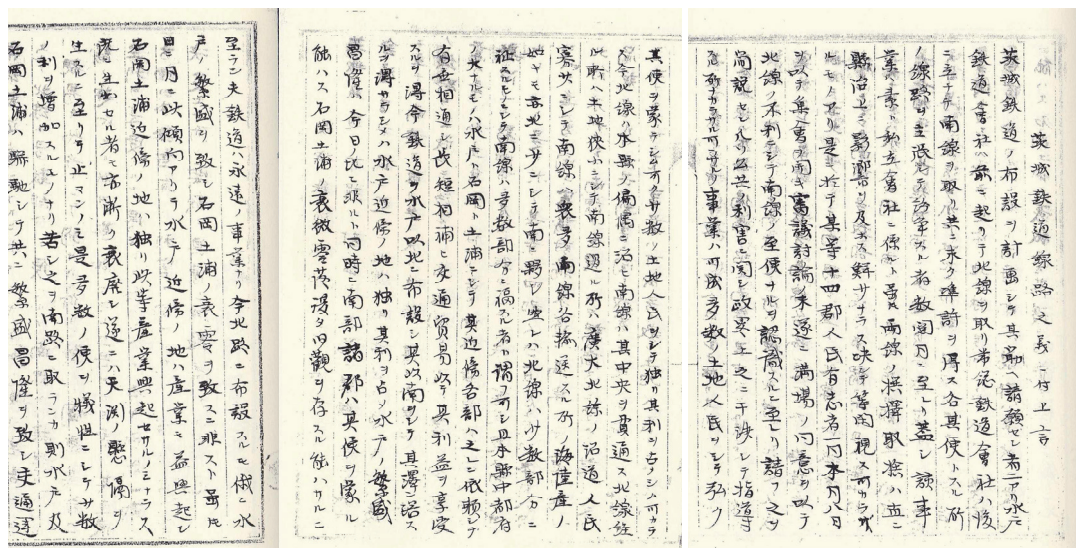 茨城鉄道線路之義ニ付上言
茨城鉄道ノ布設ヲ計画シテ其筋ヘ請願セシ者二アリ水戸
鉄道會社ハ前ニ起リテ北線ヲ取リ常総鉄道會社ハ後
ニ立チテ南線ヲ取リ共ニ未タ準許ヲ得ス各其便トスル所
ノ線路ヲ主張シテ紛争スル者数閲月ニ至レリ蓋シ該事
業ハ素ト私立會社ニ係ルト雖モ両線ノ撰擇取捨ハ直ニ
縣治上ニ影響ヲ及ホス尠少ナラス決シテ等閑視ス可カラサ
ルモノアリ是ニ於テ某等十四郡人民有志者一同本月八日
ヲ以テ集會ヲ開キ審議討論ノ末遂ニ満場ノ同意ヲ以テ
北線ノ不利ニシテ南線ノ至便ナルヲ認識スルニ至レリ請フ之ヲ
尚説セン凡ソ公共ノ利害ニ関シ政府上之ニ干渉シテ指導
セサル可カラサル所ノ事業ハ可成多数ノ土地人民ヲシテ弘ク
其便ヲ蒙ラシム可ク少数ノ土地人民ヲシテ独リ其利ヲ占メシム可カラ
ス今北線ハ本縣ノ偏隅ニ沿ヒ南線ハ其中央ヲ貫通ス北線経
ル所ハ土地狭小ニシテ南線廻ル所ハ廣大北線ノ沿道人民
寡少ニシテ南線ハ衆多南線ノ合輸送スル所ノ海陸産ノ
如キモ亦北ニ少ニシテ南ニ夥シ要スルニ北線ハ少数部分ニ
福スルモノニシテ南線ハ多数部分ニ福スル者ト謂フ可シ且本縣中都府
ノ大ナルモノハ水戸ト石岡ト土浦ニシテ其近傍各部ハ之レニ依頼シテ
有無相通シ長短相補ヒ交通貿易以テ其利益ヲ享受
スルヲ得今鉄道ヲ水戸以北ニ布設シ其以南ヲシテ其澤ニ浴ス
ルヲ得サラシメハ水戸近傍ノ地ハ独リ其利ヲ占メ水戸ノ繁盛
昌隆ハ今日ノ比ニ非ルト同時ニ南部諸郡ハ其便ヲ蒙ル
能ハス石岡土浦ノ衰微零落復タ旧観ヲ存スル能ハサルニ
至ラン夫鉄道ハ永遠ノ事業ナリ今北路ニ布設スルモ俄ニ水
戸ノ繁盛ヲ致シ石岡土浦ノ衰零ヲ致スニ非スト雖モ
日ニ月ニ此傾向アリテ水戸近傍ノ地ハ産業ニ益興起シ
石岡土浦近傍ノ地ハ独リ此等産業興起セサルノミナラス
既ニ生出セル者モ亦漸ク衰廃シ遂ニハ天渕ノ懸隔ヲ
生スルニ至リテ止マンノミ是多数ノ便ヲ犠牲ニシテ少数
ノ利ヲ増加スルモノナリ苦シ之ヲ南路ニ取ランカ則水戸及
石岡土浦ハ聯馳シテ共ニ繁盛昌隆ヲ致シ交通運